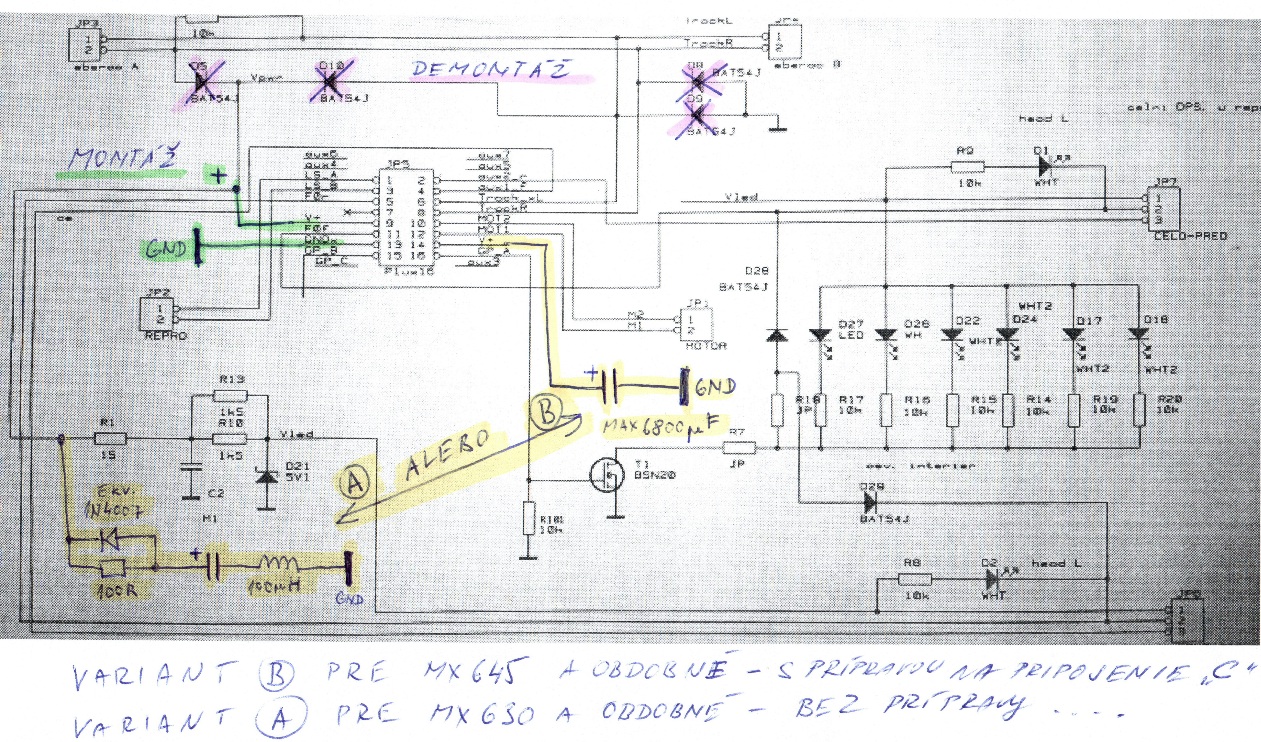 JP3
1
2
10k
TrackL
TrackR
1
2
D5
BAT54J
Vpwr
D10
BAT54J
DEMONTÁŽ
D8
BAT54J
D9
BAT54J
head L
MONTÁŽ
+
aux6
aux4
LS_A
LS_B
V+
GND
GP_B
GP_C
JP5
1 2
3 4
5 6
7 8
9 10
11 12
13 14
15 16
Plux16
aux7
aux5
TrackR
MOT2
MOT1
V+
GP_A
aux3
Vled
R9
10k
D1
WHT
JP7
1
2
3
CELO-PRED
GND
JP2
1
2
REPRO
M2
M1
JP1
1
2
MOTOR
D28
BAT54J
D27
LED
D26
WH
D22
WHT2
D24
WHT2
D17
WHT2
D18
WHT2
R18
JP
R17
10k
R16
10k
R15
10k
R14
10k
R19
10k
R20
10k
+
GND
MAX 6800µF
B
ALEBO
A
R13
1k5
R10
1k5
R1
15
Vled
C2
M1
D21
5V1
T1
BSN20
R7
JP
R101
10k
osv. interier
D29
BAT54J
EKV.
1N4007
100R
+
100µH
GND
R8
10k
D2
WHT
head L
1
2
3
VARIANT B PRE MX645 A OBDOBNÉ - S PRÍPRAVOU NA PRIPOJENIE „C“
VARIANT A PRE MX630 A OBDOBNÉ - BEZ PRÍPRAVY ....